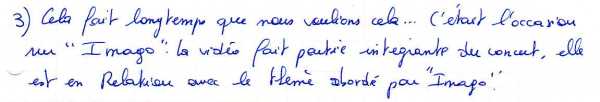 3) Cela fait longtemps que nous voulions cela... C'était l'occasion
sur "Imago": la vidéo fait partie intégrante du concert, elle
est en Relation avec le thème abordé par "Imago".